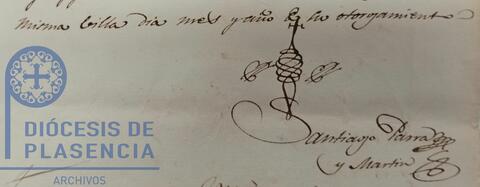 misma villa dia mes y año de su otorgamient
DIÓCESIS DE
PLASENCIA
ARCHIVOS
Santiago Parra
y Martin